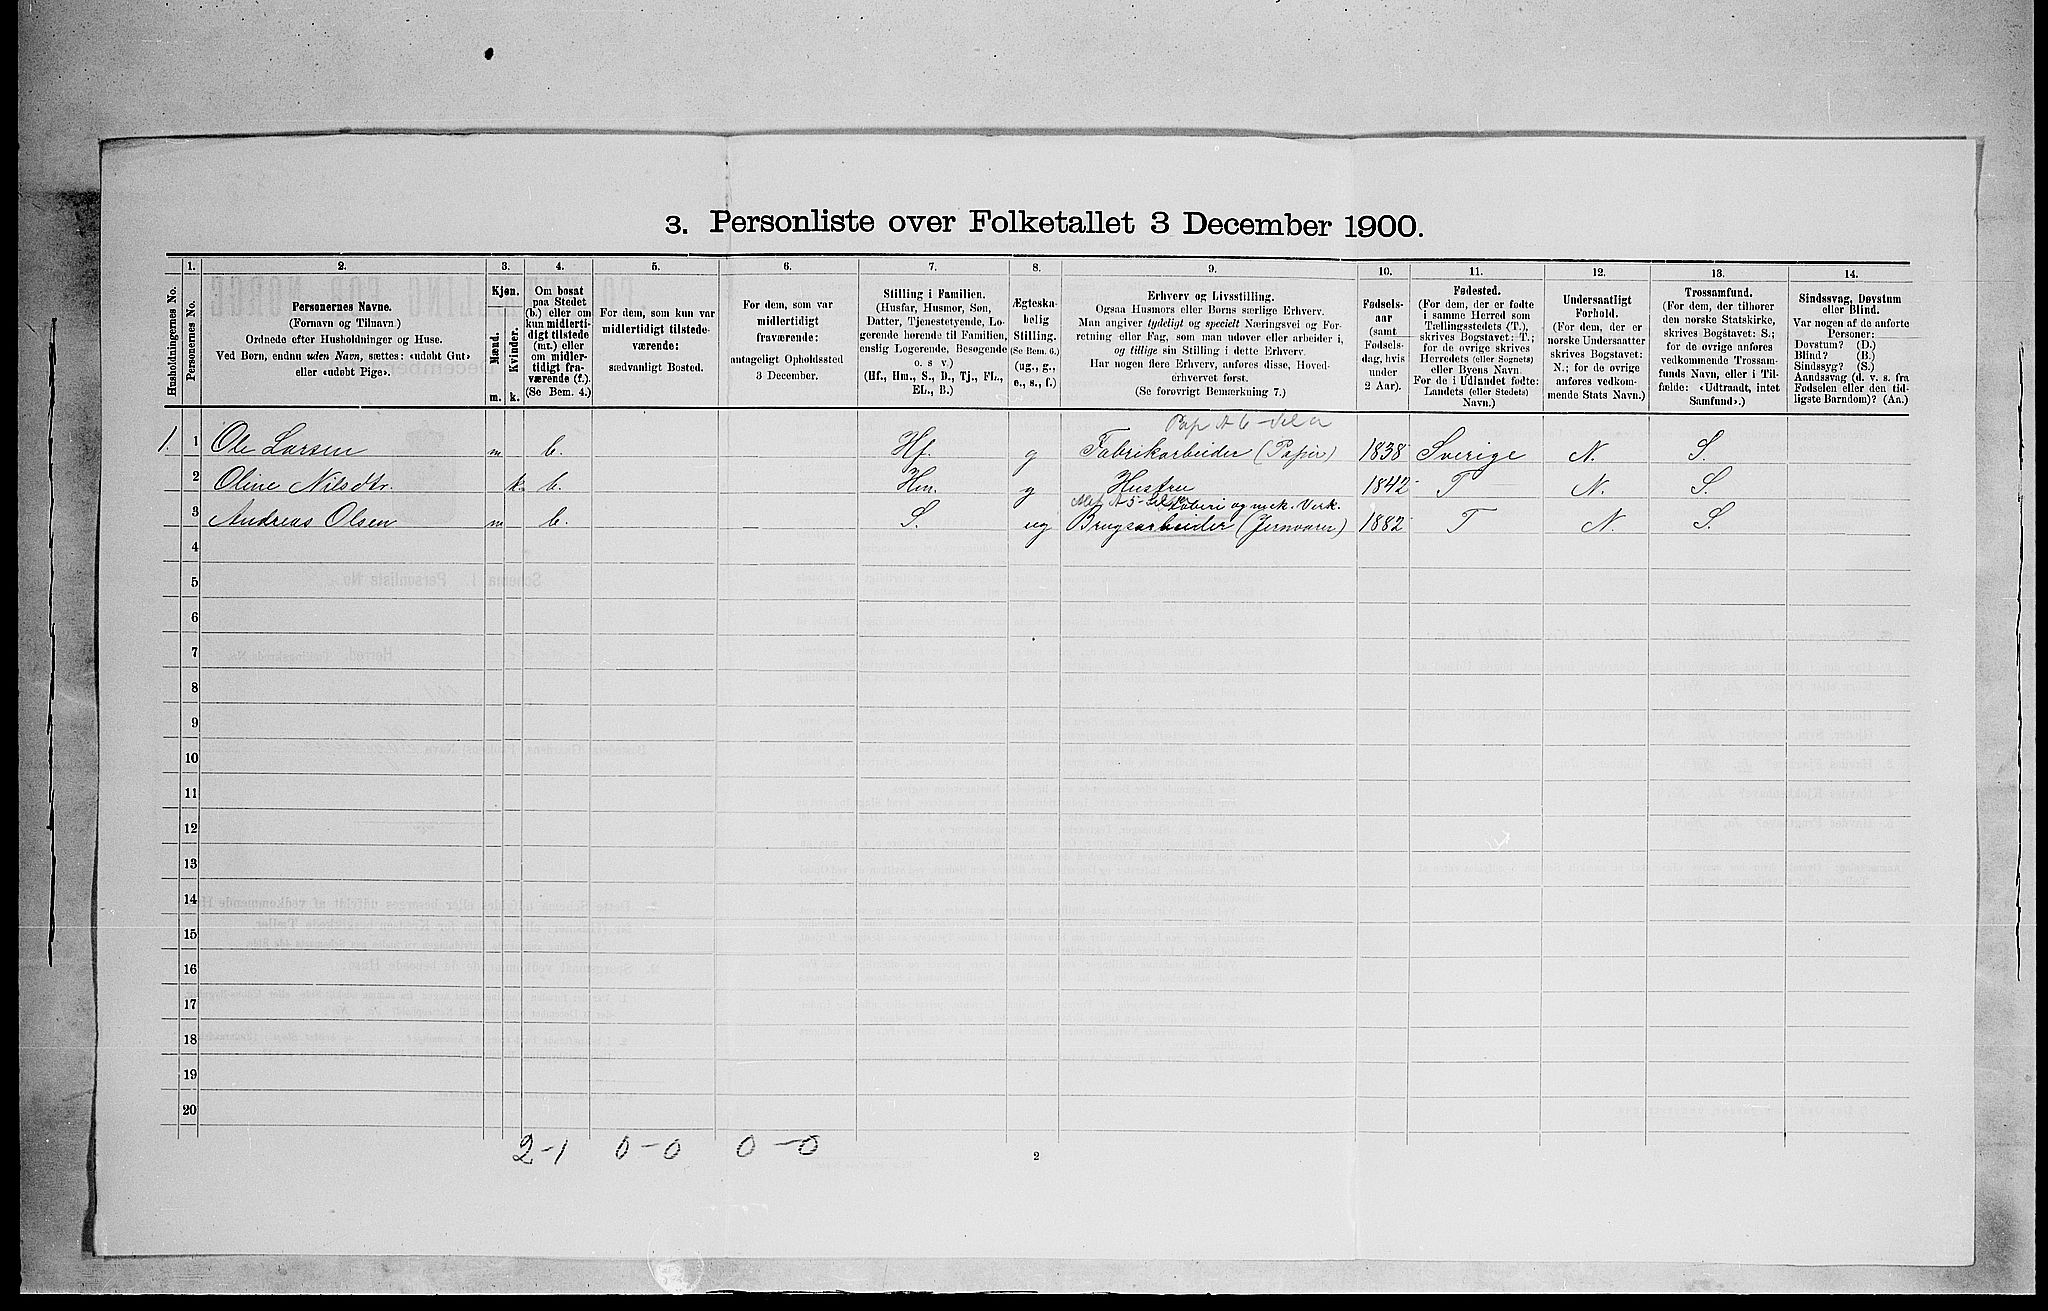 3. Personliste over Folketallet 3 December 1900.
Husholdningernes No.
1.
Personernes No.
2.
Personernes Navne.
(Fornavn og Tilnavn)
Ordnede efter Husholdninger og Huse.
Ved Børn, endnu uden Navn, sættes: «udøbt Gut»
eller «udøbt Pige».
3.
Kjøn.
Mænd.
Kvinder.
m.
k.
4.
Om bosat
paa Stedet
(b.) eller om
kun midlerti-
digt tilstede
(mt.) eller
om midler-
tidigt fra-
værende (f.).
(Se Bem. 4.)
5.
For dem, som kun var
midlertidigt tilstede-
værende:
sædvanligt Bosted.
6.
For dem, som var
midlertidigt
fraværende:
antageligt Opholdssted
3 December.
7.
Stilling i Familien.
(Husfar, Husmor, Søn,
Datter, Tjenestetyende, Lo-
gerende hørende til Familien,
enslig Logerende, Besøgende
o. s v.)
(Hf., Hm., S., D., Tj., FL.,
EL., B.)
8.
Ægteska-
belig
Stilling.
(Se Bem. 6.)
(ug., g.,
e., s., f.)
9.
Erhverv og Livsstilling.
Ogsaa Husmors eller Børns særlige Erhverv.
Man angiver tydeligt og specielt Næringsvei og For-
retning eller Fag, som man udøver eller arbeider i,
og tillige sin Stilling i dette Erhverv.
Har nogen flere Erhverv, anføres disse, Hoved-
erhvervet først.
(Se forøvrigt Bemærkning 7.)
10.
Fødsels-
aar
(samt
Fødsels-
dag, hvis
under
2 Aar).
11.
Fødested.
(For dem, der er fødte
i samme Herred som
Tællingsstedets (T.),
skrives Bogstavet: T.;
for de øvrige skrives
Herredets (eller Sognets)
eller Byens Navn.
For de i Udlandet fødte:
Landets (eller Stedets)
Navn.)
12.
Undersaatligt
Forhold.
(For dem, der er
norske Undersaatter
skrives Bogstavet:
N.; for de øvrige
anføres vedkom-
mende Stats Navn.)
13.
Trossamfund.
(For dem, der tilhører
den norske Statskirke,
skrives Bogstavet: S.;
for de øvrige anføres
vedkommende Trossam-
funds Navn, eller i Til-
fælde: «Udtraadt, intet
Samfund».)
14.
Sindssvag, Døvstum
eller Blind.
Var nogen af de anførte
Personer:
Døvstum? (D.)
Blind? (B.)
Sindssyg? (S.)
Aandssvag (d. v. s. fra
Fødselen eller den tid-
ligste Barndom)? (Aa.)
1. 1 Ole Larsen m b. Hf. g Fabrikarbeider (Papir) 1838 Sverige N. S.
2 Oline Nilsdtr. k b. Hm. g Hustru 1842 T N. S.
og mek. Verk.
3 Andreas Olsen m b. S. ug Brugsarbeider (Jernvarer) 1882 T N. S.
4
5
6
7
8
9
10
11
12
13
14
15
16
17
18
19
20
2-1 0-0 0-0
2